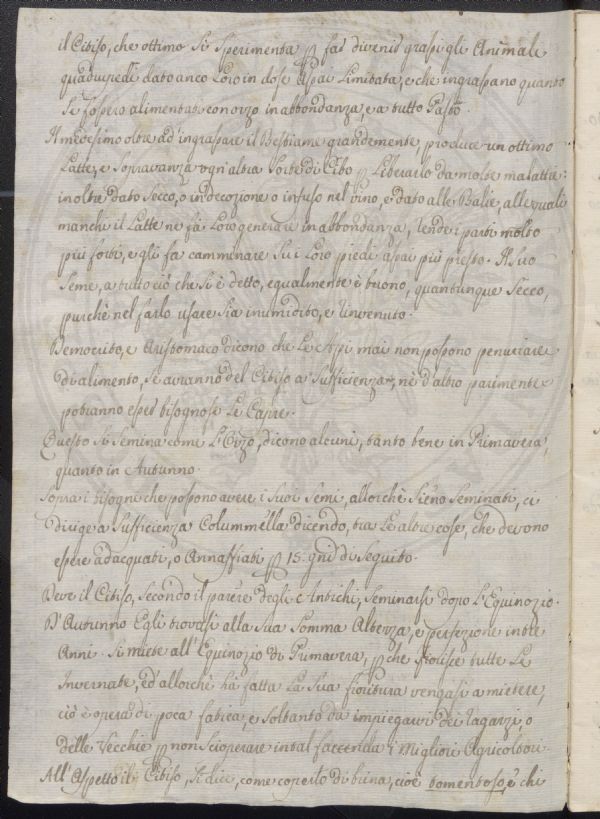 il Citiso, che ottimo si sperimenta p far divenir grassi gli Animali
quadrupedi dato anco loro in dose assai limitata, e che ingrassano quanto
se fossero alimentati con orzo in abbondanza, e a tutto Pasto.
Il medesimo oltre ad' ingrassare il Bestiame grandemente, produce un ottimo
Latte, e sopravanza ogn' altra sorte di Cibo p liberarlo da molte malattie:
inoltre dato secco, o in decozione o infuso nel vino, e dato alle Balie, alle quali
manchi il Latte ne fà loro generare in abbondanza, rende i parti molto
più forti, e gli fa camminare su i loro piedi assai più presto. Il suo
seme, a tutto ciò che si è detto, egualmente è buono, quantunque secco,
purchè nel farlo usare sia inumidito, e rinvenuto.
Democrito, e Aristomaco dicono che le Api mai non possono penuriare
di alimento, se avranno del Citiso a sufficienza, nè d'altro parimente
potranno esser bisognose le Capre.
Questo si semina come l'Orzo, dicono alcuni, tanto bene in Primavera,
quanto in Autunno.
Sopra i bisogni che possono avere i suoi semi, allorchè sieno seminati, ci
dirige a sufficienza Colummella dicendo, tra le altre cose, che devono
essere adacquati, o Annaffiati p 15: gni di seguito.
Deve il Citiso, secondo il parere degli Antichi, seminarsi dopo l'Equinozio
D'Autunno Egli trovasi alla sua somma Altezza, e perfezione in tre
Anni. Si miete all'Equinozio di Primavera, pche fiorisce tutte le
Invernate, ed' allorchè ha fatta la sua fioritura vengasi a mietere,
ciò è opera di poca fatica, e soltanto da impiegarvi dei ragazzi, o
delle vecchie p non scioperare in tal faccenda i migliori Agricoltori.
All' Aspetto il Citiso, si dice, come coperto di brina, cioè tomentoso, e chi